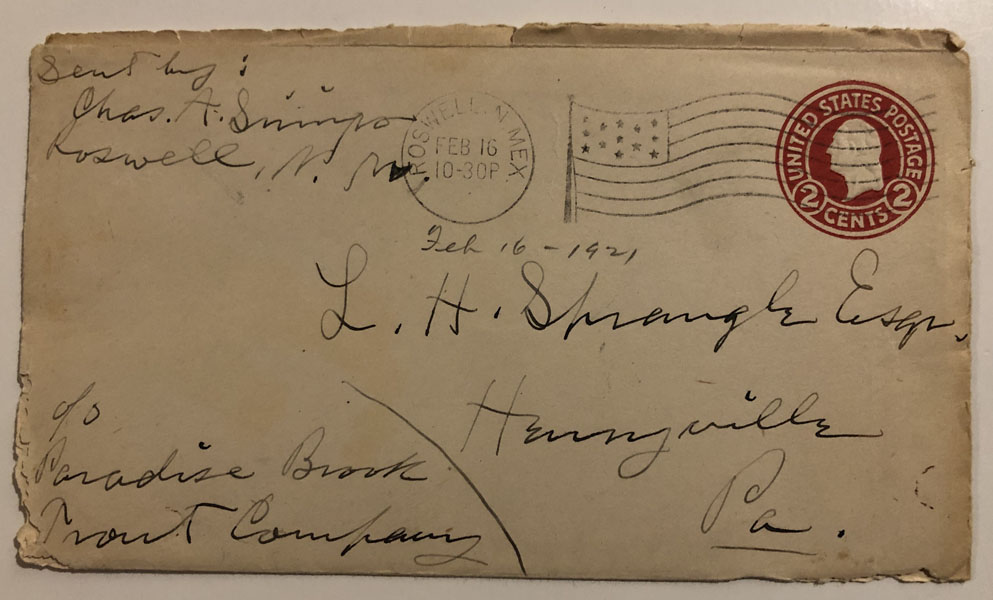 Sent by:
Chas. A.
Roswell, N. M.
ROSWELL, N. MEX
FEB 16
10-30P
UNITED STATES POSTAGE
2 CENTS 2
Feb 16 - 1921
L. H. Sprangle Esqr.
Henryville
Pa.
c/o
Paradise Brook
Trout Company